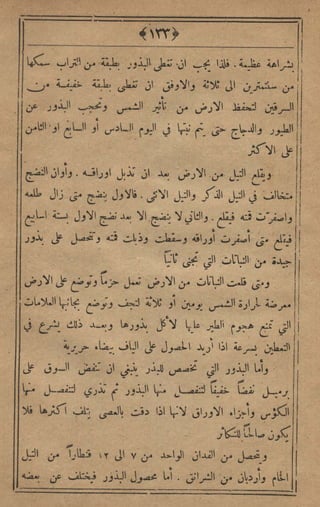 ﴿١٣٣﴾
بشراهة عظيمة . فلذا يجب ان تغطى البذور بطبقة من التراب سمكها
من سنتمترين الى ثلاثة والاوفق ان تغطى بطبقة خفيفة من
السرقين لتحفظ الارض من تأثير الشمس وتحجب البذور عن
الطيور والدجاج حتى يتم نبتها في اليوم السادس أو السابع او الثامن
على الاكثر
ويقلع التيل من الارض بعد ان تذبل اوراقه . وأوان النضج
متخالف في التيل الذكر والتيل الانثى . فالاول ينضج متى زال طلعه
واصفرت قمته فيقلع . والثاني لا ينضج الا بعد نضج الاول بستة اسابيع
فيقلع متى أصفرت أوراقه وسقطت وذبلت قمته ونتحصل على بذور
جيدة من النباتات التي تجنى ثانياً
ومتى قلعت النباتات من الارض تعمل حزماً وتوضع على الارض
معرضة لحرارة الشمس يومين أو ثلاثة لتجف وتوضع بجانبها العلامات
التي تمنع هجوم الطير عليها لأكل بذورها وبعد ذلك يشرع في
التعطين بسرعة اذا أريد الحصول على الياف بيضاء حريرية
وأما البذور التي تخصص للبذر ينبغي ان تنفض السوق على
برميل نفضاً خفيفاً لتنفصل منها البذور ثم تذري لتنفصل منها
الكؤوس وأجزاء الاوراق لانها اذا دقت بالعصى يتلف اكثرها فلا
يكون صالحاً للتكاثر
ويتحصل من الفدان الواحد من ٧ الى ١٢ قنطاراً من التيل
الخام وأردبان من الشرانق . أما محصول البذور فيختلف عن بعضه